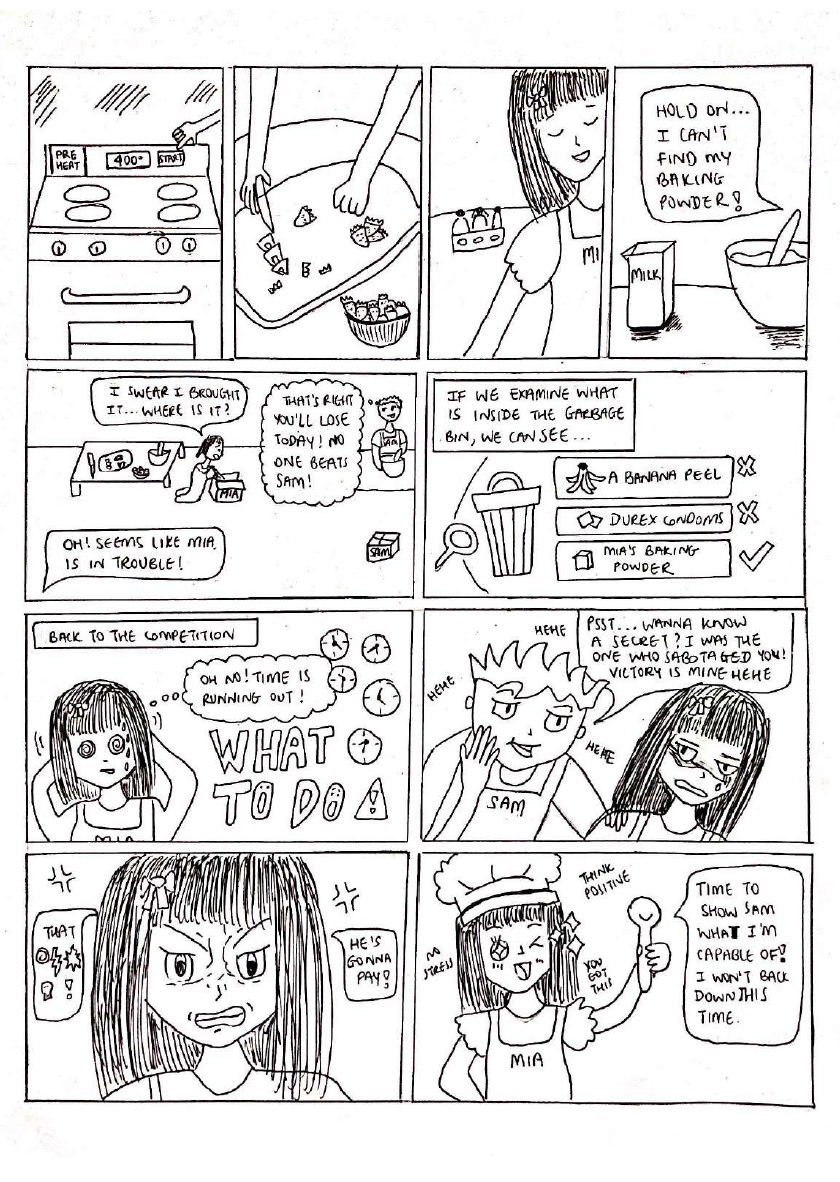 PRE
HEAT
400°
START
MI
HOLD ON...
I CAN'T
FIND MY
BAKING
POWDER!
MILK
I SWEAR I BROUGHT
IT... WHERE IS IT?
THAT'S RIGHT
YOU'LL LOSE
TODAY! NO
ONE BEATS
SAM!
SAM
MIA
OH! SEEMS LIKE MIA
IS IN TROUBLE!
SAM
IF WE EXAMINE WHAT
IS INSIDE THE GARBAGE
BIN, WE CAN SEE...
A BANANA PEEL
DUREX CONDOMS
MIA'S BAKING
POWDER
BACK TO THE COMPETITION
OH NO! TIME IS
RUNNING OUT!
WHAT
TO DO
!
MIA
HEHE
HEHE
HEHE
PSST... WANNA KNOW
A SECRET? I WAS THE
ONE WHO SABOTAGED YOU!
VICTORY IS MINE HEHE
SAM
THAT
!
HE'S
GONNA
PAY!
THINK
POSITIVE
NO
STRESS
YOU
GOT
THIS
MIA
TIME TO
SHOW SAM
WHAT I'M
CAPABLE OF!
I WON'T BACK
DOWN THIS
TIME.